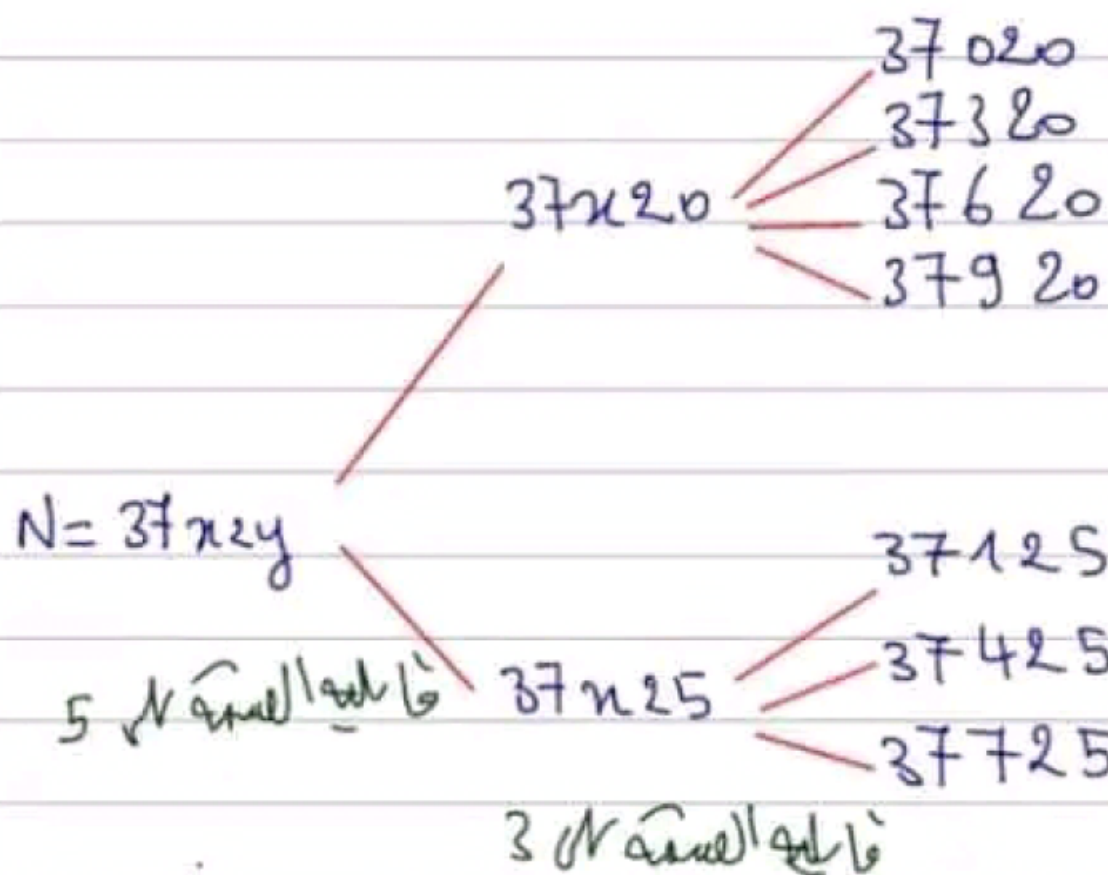 37020
37320
37x20
37620
37920
N= 37x2y
37125
37425
37x25
قابلية القسمة على 5
37725
قابلية القسمة على 3